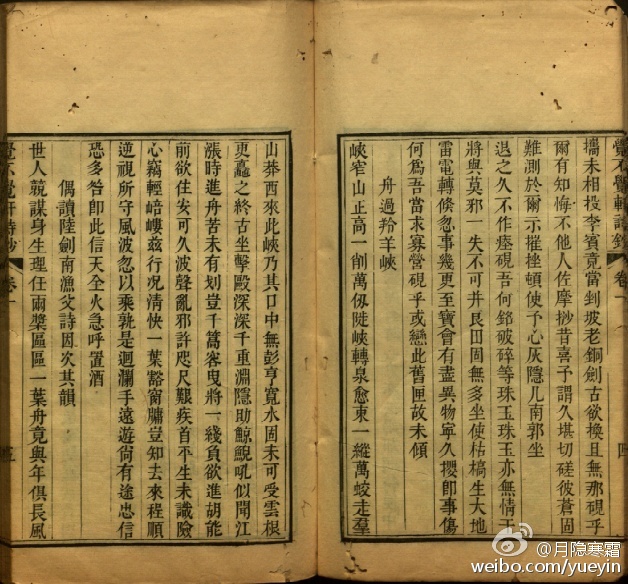 覺不覺軒詩鈔 卷一 四
攜未相投李賓竟當到坡老銅劍古欲換且無那硯乎
爾有知悔不他人佐摩挱昔喜予謂久堪切磋彼蒼固
難測於爾示摧挫頓使予心灰隱几南郭坐
退之久不作瘞硯吾何銘破碎等珠玉珠玉亦無情干
將與莫邪一失不可幷艮田固無多坐使枯槁生大地
雷電轉倏忽事幾更至寶會有盡異物寧久攖卽事傷
何爲吾當求寡營硯乎或戀此舊匣故未傾
舟過羚羊峽
峽窄山正高一削萬仭陡峽轉泉愈東一縱萬蛟走羣
山莽西來此峽乃其口中無彭亨寬水固未可受雲根
更蠚之終古坐擊毆深深千重淵隱助鯨鯢吼似聞江
漲時進舟苦未有划豈千篙客曳將一綫負欲進胡能
前欲住安可久波聲亂邪許咫尺艱疾首平生未識險
心竊輕峿嶁茲行况清快一葉豁窗牖豈知去來程順
逆視所守風波忽以乘孰是迴瀾手遠遊尙有途忠信
恐多咎卽此信天全火急呼置酒
偶讀陸劍南漁父詩因次其韻
世人競謀身生理任爾槳區區一葉舟竟與年俱長風
覺不覺軒詩鈔 卷一
@月隐寒霜
weibo.com/yueyin